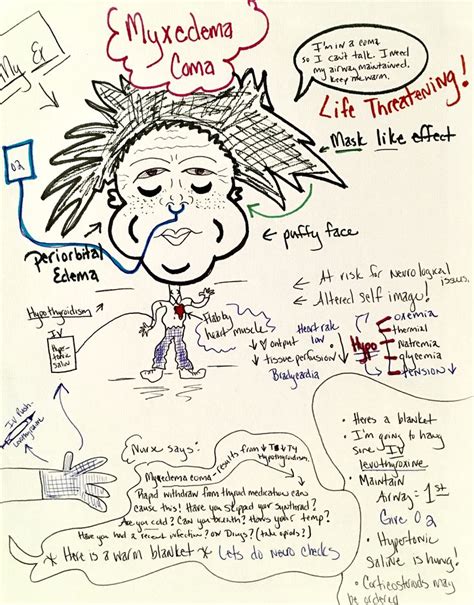 Myxedema
Coma
I'm in a coma
so I can't talk. I need
my airway maintained.
keep me warm.
Life Threatening!
My Ex
O2
Mask like effect
puffy face
Periorbital
Edema
At risk for neurological issues.
Altered self image!
Hypothyroidism
IV
Hypertonic
saline
Flabby
heart muscle
↓ output
↓ tissue perfusion
Bradycardia
Heart rate
low
Hypo
oxemia
thermial
natremia
glycemia
tension ↓
IV Push
Levothyroxine
Nurse says:
Myxedema coma results from ↓ T3 ↓ T4
Hypothyroidism
Rapid withdraw from thyroid medication can
cause this! Have you skipped your synthroid?
Are you cold? Can you breath? How's your temp?
Have you had a recent infection? or Drugs? (take opiods?)
* Here is a warm blanket * Lets do neuro checks
• Heres a blanket
• I'm going to hang
some IV
levothyroxine
• Maintain
Airway = 1st
Give O2
• Hypertonic
saline is hung!
• Corticosteriods may
be ordered